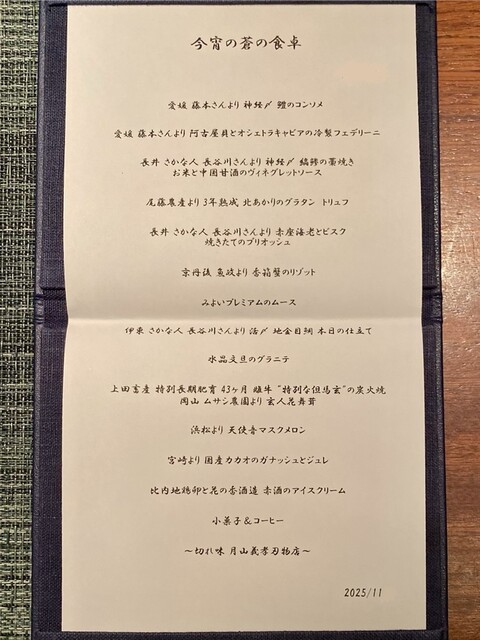 今宵の蒼の食卓
愛媛 藤本さんより 神経〆 鱧のコンソメ
愛媛 藤本さんより 阿古屋貝とオシェトラキャビアの冷製フェデリーニ
長井 さかな人 長谷川さんより 神経〆 縞鯵の藁焼き
お米と中国甘酒のヴィネグレットソース
尾藤農産より 3年熟成 北あかりのグラタン トリュフ
長井 さかな人 長谷川さんより 赤座海老とビスク
焼きたてのブリオッシュ
京丹後 魚政より 香箱蟹のリゾット
みよいプレミアムのムース
伊東 さかな人 長谷川さんより 活〆 地金目鯛 本日の仕立て
水晶文旦のグラニテ
上田畜産 特別長期肥育 43ヶ月 雌牛 "特別な但馬玄"の炭火焼
岡山 ムサシ農園より 玄人花舞茸
浜松より 天使音マスクメロン
宮崎より 国産カカオのガナッシュとジュレ
比内地鶏卵と花の香酒造 赤酒のアイスクリーム
小菓子&コーヒー
〜切れ味 月山義孝刃物店〜
2025/11